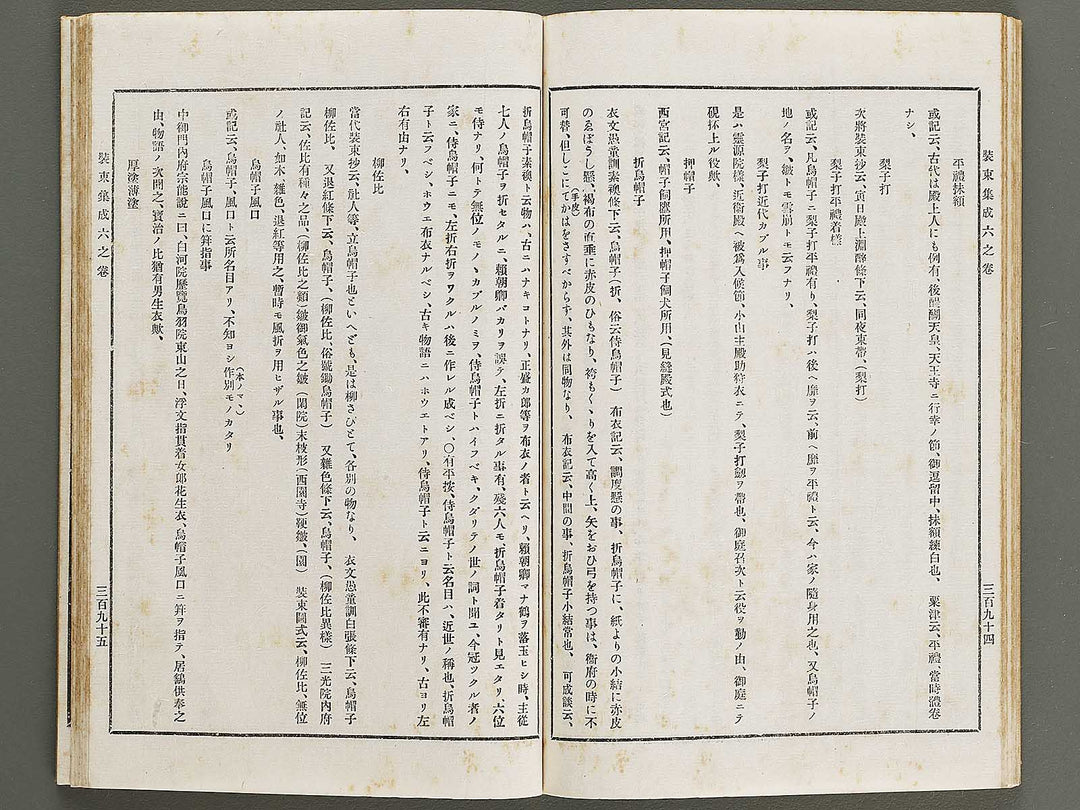 裝束集成六之卷
三百九十四
平禮抹額
或記云、古代は殿上人にも例有、後醍醐天皇、天王寺ニ行幸ノ節、御逗留中、抹額練白也、　粟津云、平禮、當時禮卷
ナシ、
梨子打
次將裝束抄云、寅日殿上淵醉條下云、同夜束帶、(梨打)
梨子打平禮着樣
或記云、凡烏帽子ニ梨子打平禮有り、梨子打ハ後ヘ靡ヲ云、前ヘ靡ヲ平禮ト云、今ハ家ノ隨身用之也、又烏帽子ノ
地ノ名ヲ、皺トモ雪崩トモ云フナリ、
梨子打近代カブル事
是ハ靈源院樣、近衞殿ヘ被爲入候節、小山主殿助狩衣ニテ、梨子打劒ヲ帶也、御庭召次ト云役ヲ勤ノ由、御庭ニテ
硯抔上ル役歟、
押帽子
西宮記云、帽子飼鷹所用、押帽子飼犬所用、(見縫殿式也)
折烏帽子
衣文愚童訓素襖條下云、烏帽子(折、俗云侍烏帽子)　布衣記云、調度懸の事、折烏帽子に、紙よりの小結に赤皮
のゑぼうし懸、褐布の直垂に赤皮のひもなり、袴もくゝりを入て高く上、矢をおひ弓を持つ事は、衞府の時に不
可替、但しこにてかは(手皮)をさすべからす、其外は同物なり、　布衣記云、中間の事、折烏帽子小結常也、　可成談云、
折烏帽子素襖ト云物ハ、古ニハナキコトナリ、正盛カ郎等ヲ布衣ノ者ト云ヘリ、賴朝卿マナ鶴ヲ落玉ヒシ時、主從
七人ノ烏帽子ヲ折セタルニ、賴朝卿バカリヲ誤テ、左折ニ折タル事有、殘六人モ、折烏帽子着タリト見エタリ、六位
モ侍ナリ、何トテ無位ノモノヽカブルノミヲ、侍烏帽子トハイフベキ、クダリテノ世ノ詞ト聞ユ、今冠ツクル者ノ
家ニ、侍烏帽子ニモ、左折右折ヲワクルハ後ニ作レル成ベシ、〇有平按、侍烏帽子ト云名目ハ、近世ノ稱也、折烏帽
子ト云フベシ、ホウエ布衣ナルベシ、古キ物語ニハホウエトアリ、侍烏帽子ト云ニヨリ、此不審有ナリ、古ヨリ左
右有由ナリ、
柳佐比
當代裝束抄云、社人等、立烏帽子也といへども、是は柳さびとて、各別の物なり、　衣文愚童訓白張條下云、烏帽子
柳佐比、　又退紅條下云、烏帽子、(柳佐比、俗號鋤烏帽子)　又雜色條下云、烏帽子、(柳佐比異樣)　三光院內府
記云、佐比有種々之品、(柳佐比之類)皺御氣色之皺(閑院)末枝形(西園寺)鞕皺、(園)　裝束圖式云、柳佐比、無位
ノ社人、如木、雜色、退紅等用之、暫時モ風折ヲ用ヒザル事也、
烏帽子風口
或記云、烏帽子、風口ト云所名目アリ、不知ヨシ作別モノカタリ(本ノマヽ)
烏帽子風口に笄指事
中御門內府宗能說ニ曰、白河院歷覽鳥羽院東山之日、浮文指貫着女郎花生衣、烏帽子風口ニ笄ヲ指テ、居鶴供奉之
由、物語ノ次聞之、寶治ノ比猶有男生衣歟、
厚塗薄塗
裝束集成六之卷
三百九十五